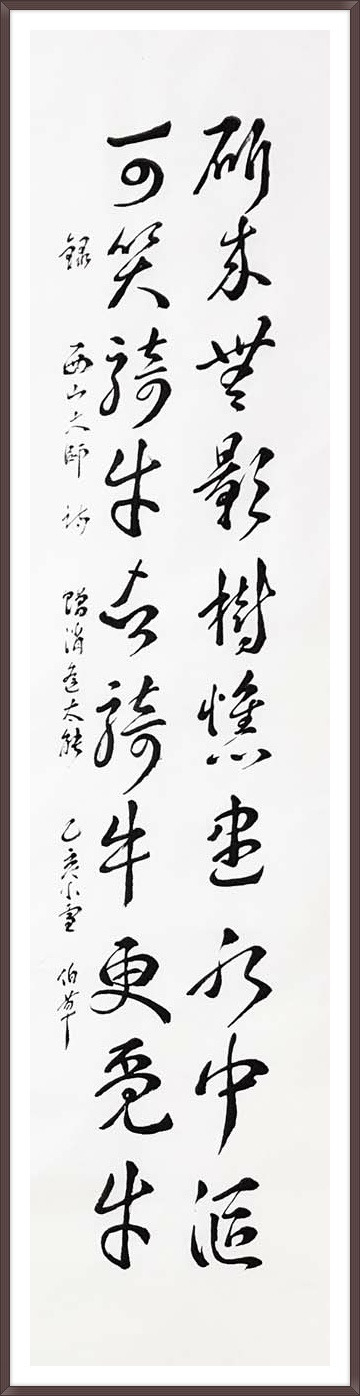 斫來無影樹燋盡水中漚
可笑騎牛者騎牛更覓牛
錄 西山大師 詩 贈消遙太能 己亥小雪 伯草